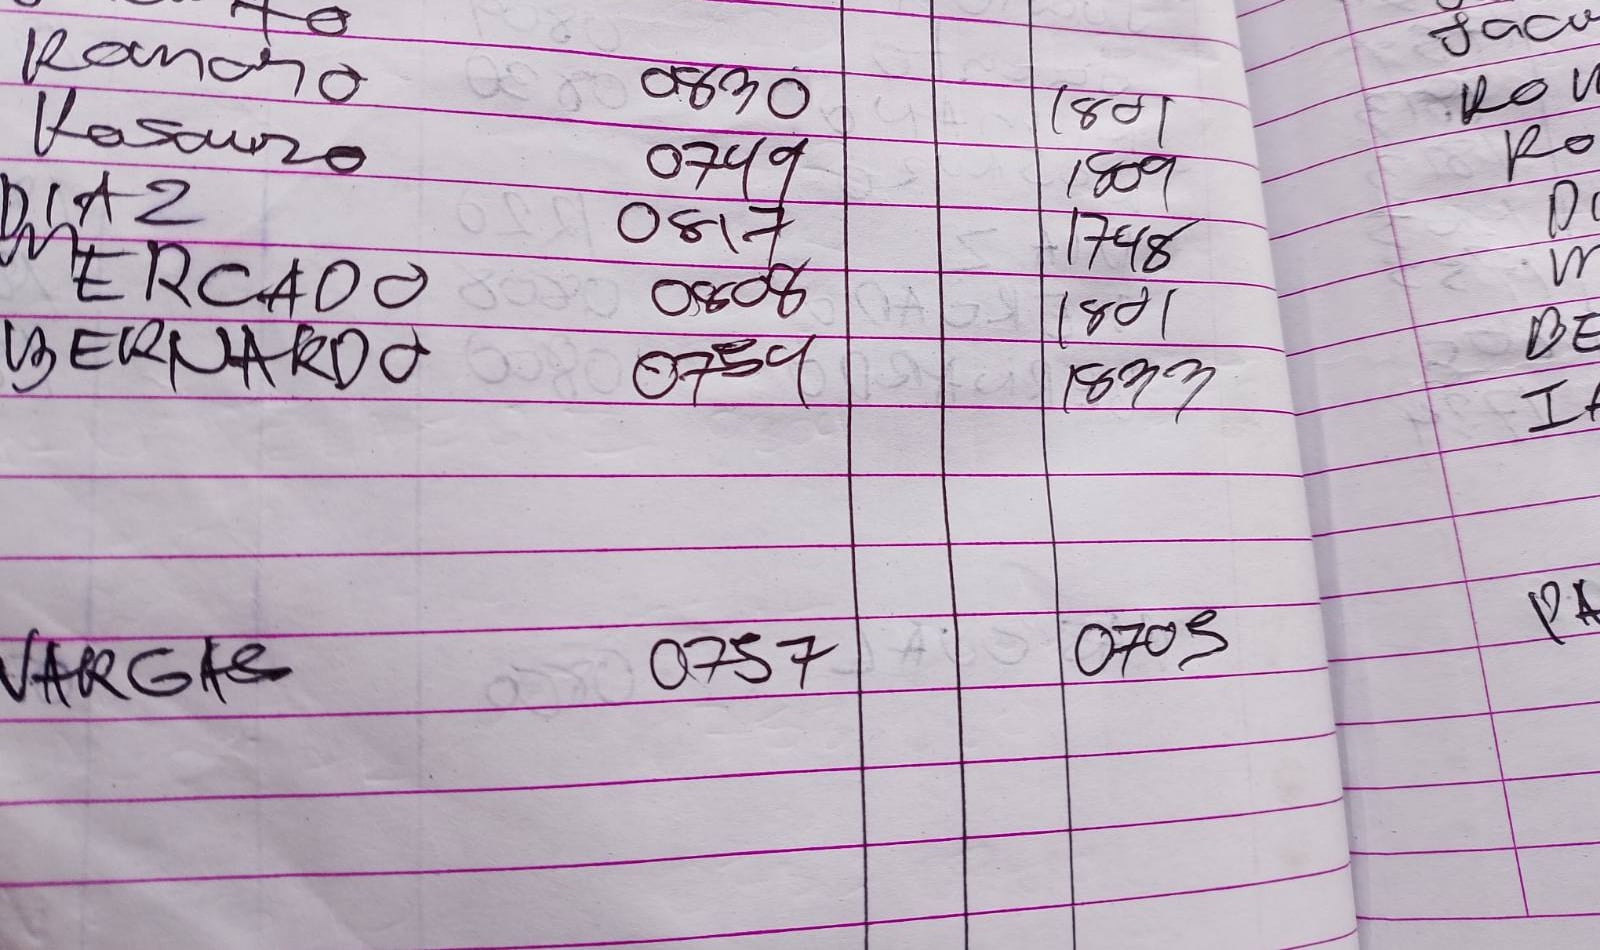 Romano 0830 1801
Rosauro 0749 1809
DIAZ 0817 1748
MERCADO 0808 1801
BERNARDO 0754 1833
VARGAS 0757 0705
Jacu
ROM
RO
DI
M
BE
IA
PA